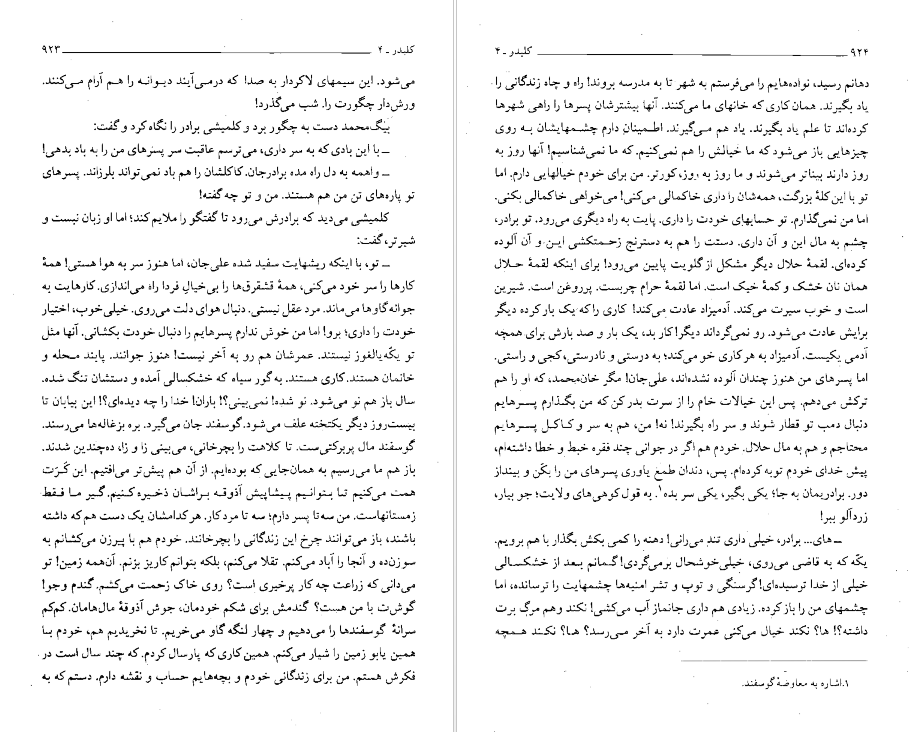 کلیدر ـ ۴ ۹۲۳
می‌شود. این سیمهای لاکردار به صدا که درمی‌آیند دیوانه را هم آرام می‌کنند.
ورش‌دار چگورت را. شب می‌گذرد!
بیگ‌محمد دست به چگور برد و کلمیشی برادر را نگاه کرد و گفت:
ـ با این بادی که به سر داری، می‌ترسم عاقبت سر پسرهای من را به باد بدهی!
ـ واهمه به دل راه مده برادرجان. کاکلشان را هم باد نمی‌تواند بلرزاند. پسرهای
تو پاره‌های تن من هم هستند. من و تو چه گفته!
کلمیشی می‌دید که برادرش می‌رود تا گفتگو را ملایم کند؛ اما او زبان نیست و
شیرتر، گفت:
ـ تو، با اینکه ریشهایت سفید شده علی‌جان، اما هنوز سر به هوا هستی! همهٔ
کارها را سر خود می‌کنی، همهٔ قشقرقها را بی‌خیالِ فردا راه می‌اندازی. کارهایت به
جوانه‌گاوها می‌ماند. مرد عقل نیستی. دنبال هوای دلت می‌روی. خیلی خوب، اختیار
خودت را داری؛ برو! اما من خوش ندارم پسرهایم را دنبال خودت بکشانی. آنها مثل
تو یکّه‌یالغوز نیستند. عمرشان هم رو به آخر نیست! هنوز جوانند. پابند محله و
خانمان هستند. کاری هستند. به گور سیاه که خشکسالی آمده و دستشان تنگ شده.
سال باز هم نو می‌شود. نو شده! نمی‌بینی؟! باران! خدا را چه دیده‌ای؟! این بیابان تا
بیست‌روز دیگر یکتخته علف می‌شود. گوسفند جان می‌گیرد. بره بزغاله‌ها می‌رسند.
گوسفند مال پربرکتی‌ست. تا کلاهت را بچرخانی، می‌بینی زا و زا، ده‌چندین شدند.
باز هم ما می‌رسیم به همان‌جایی که بوده‌ایم. از آن هم پیش‌تر می‌افتیم. این کَرَت
همت می‌کنیم تا بتوانیم پیشاپیش آذوقه براشان ذخیره کنیم. گیر ما فقط
زمستانهاست. من سه‌تا پسر دارم؛ سه تا مرد کار. هر کدامشان یک دست هم که داشته
باشند، باز می‌توانند چرخ این زندگانی را بچرخانند. خودم هم با پیرزن می‌کشانم به
سوزن‌ده و آنجا را آباد می‌کنم. تقلا می‌کنم، بلکه بتوانم کاریز بزنم. آن‌همه زمین! تو
می‌دانی که زراعت چه کار پرخیری است؟ روی خاک زحمت می‌کشم. گندم وجو!
گوش‌ت با من هست؟ گندمش برای شکم خودمان، جوش آذوقهٔ مال‌هامان. کم‌کم
سرانهٔ گوسفندها را می‌دهیم و چهار لنگه گاو می‌خریم. تا نخریدیم هم، خودم با
همین یابو زمین را شیار می‌کنم. همین کاری که پارسال کردم. که چند سال است در
فکرش هستم. من برای زندگانی خودم و بچه‌هایم حساب و نقشه دارم. دستم که به
۹۲۴ کلیدر ـ ۴
دهانم رسید، نواده‌هایم را می‌فرستم به شهر تا به مدرسه بروند! راه و چاه زندگانی را
یاد بگیرند. همان کاری که خانهای ما می‌کنند. آنها بیشترشان پسرها را راهی شهرها
کرده‌اند تا علم یاد بگیرند. یاد هم می‌گیرند. اطمینان دارم چشمهایشان به روی
چیزهایی باز می‌شود که ما خیالش را هم نمی‌کنیم. که ما نمی‌شناسیم! آنها روز به
روز دارند بیناتر می‌شوند و ما روز به روز، کورتر. من برای خودم خیالهایی دارم. اما
تو با این کلهٔ بزرگت، همه‌شان را داری خاکمالی می‌کنی! می‌خواهی خاکمالی بکنی.
اما من نمی‌گذارم. تو حسابهای خودت را داری. پایت به راه دیگری می‌رود. تو برادر،
چشم به مال این و آن داری. دستت را هم به دسترنج زحمتکشی این و آن آلوده
کرده‌ای. لقمهٔ حلال دیگر مشکل از گلویت پایین می‌رود! برای اینکه لقمهٔ حلال
همان نان خشک و کمهٔ خیک است. اما لقمهٔ حرام چربست. پرروغن است. شیرین
است و خوب سیرت می‌کند. آدمیزاد عادت می‌کند! کاری را که یک بار کرده دیگر
برایش عادت می‌شود. رو نمی‌گرداند دیگر! کار بد، یک بار و صد بارش برای همچه
آدمی یکیست. آدمیزاد به هر کاری خو می‌کند؛ به درستی و نادرستی، کجی و راستی.
اما پسرهای من هنوز چندان آلوده نشده‌اند، علی‌جان! مگر خان‌محمد، که او را هم
ترکش می‌دهم. پس این خیالات خام را از سرت بدر کن که من بگذارم پسرهایم
دنبال دمب تو قطار شوند و سر راه بگیرند! نه! من، هم به سر و کاکل پسرهایم
محتاجم و هم به مال حلال. خودم هم اگر در جوانی چند فقره خبط و خطا داشته‌ام،
پیش خدای خودم توبه کرده‌ام. پس، دندان طمعِ یاوری پسرهای من را بکَن و بینداز
دور. برادریمان به جا؛ یکی بگیر، یکی سر بده۱. به قول کوهی‌های ولایت؛ جو بیار،
زردآلو ببر!
ـ های... برادر، خیلی داری تند می‌رانی! دهنه را کمی بکش بگذار با هم برویم.
یکّه که به قاضی می‌روی، خیلی خوشحال برمی‌گردی! گمانم بعد از خشکسالی
خیلی از خدا ترسیده‌ای! گرسنگی و توپ و تشر امنیه‌ها چشمهایت را ترسانده، اما
چشمهای من را باز کرده. زیادی هم داری جانماز آب می‌کشی! نکند وهم مرگ برت
داشته؟! ها؟ نکند خیال می‌کنی عمرت دارد به آخر می‌رسد؟ ها؟ نکند همچه
۱. اشاره به معاوضهٔ گوسفند.